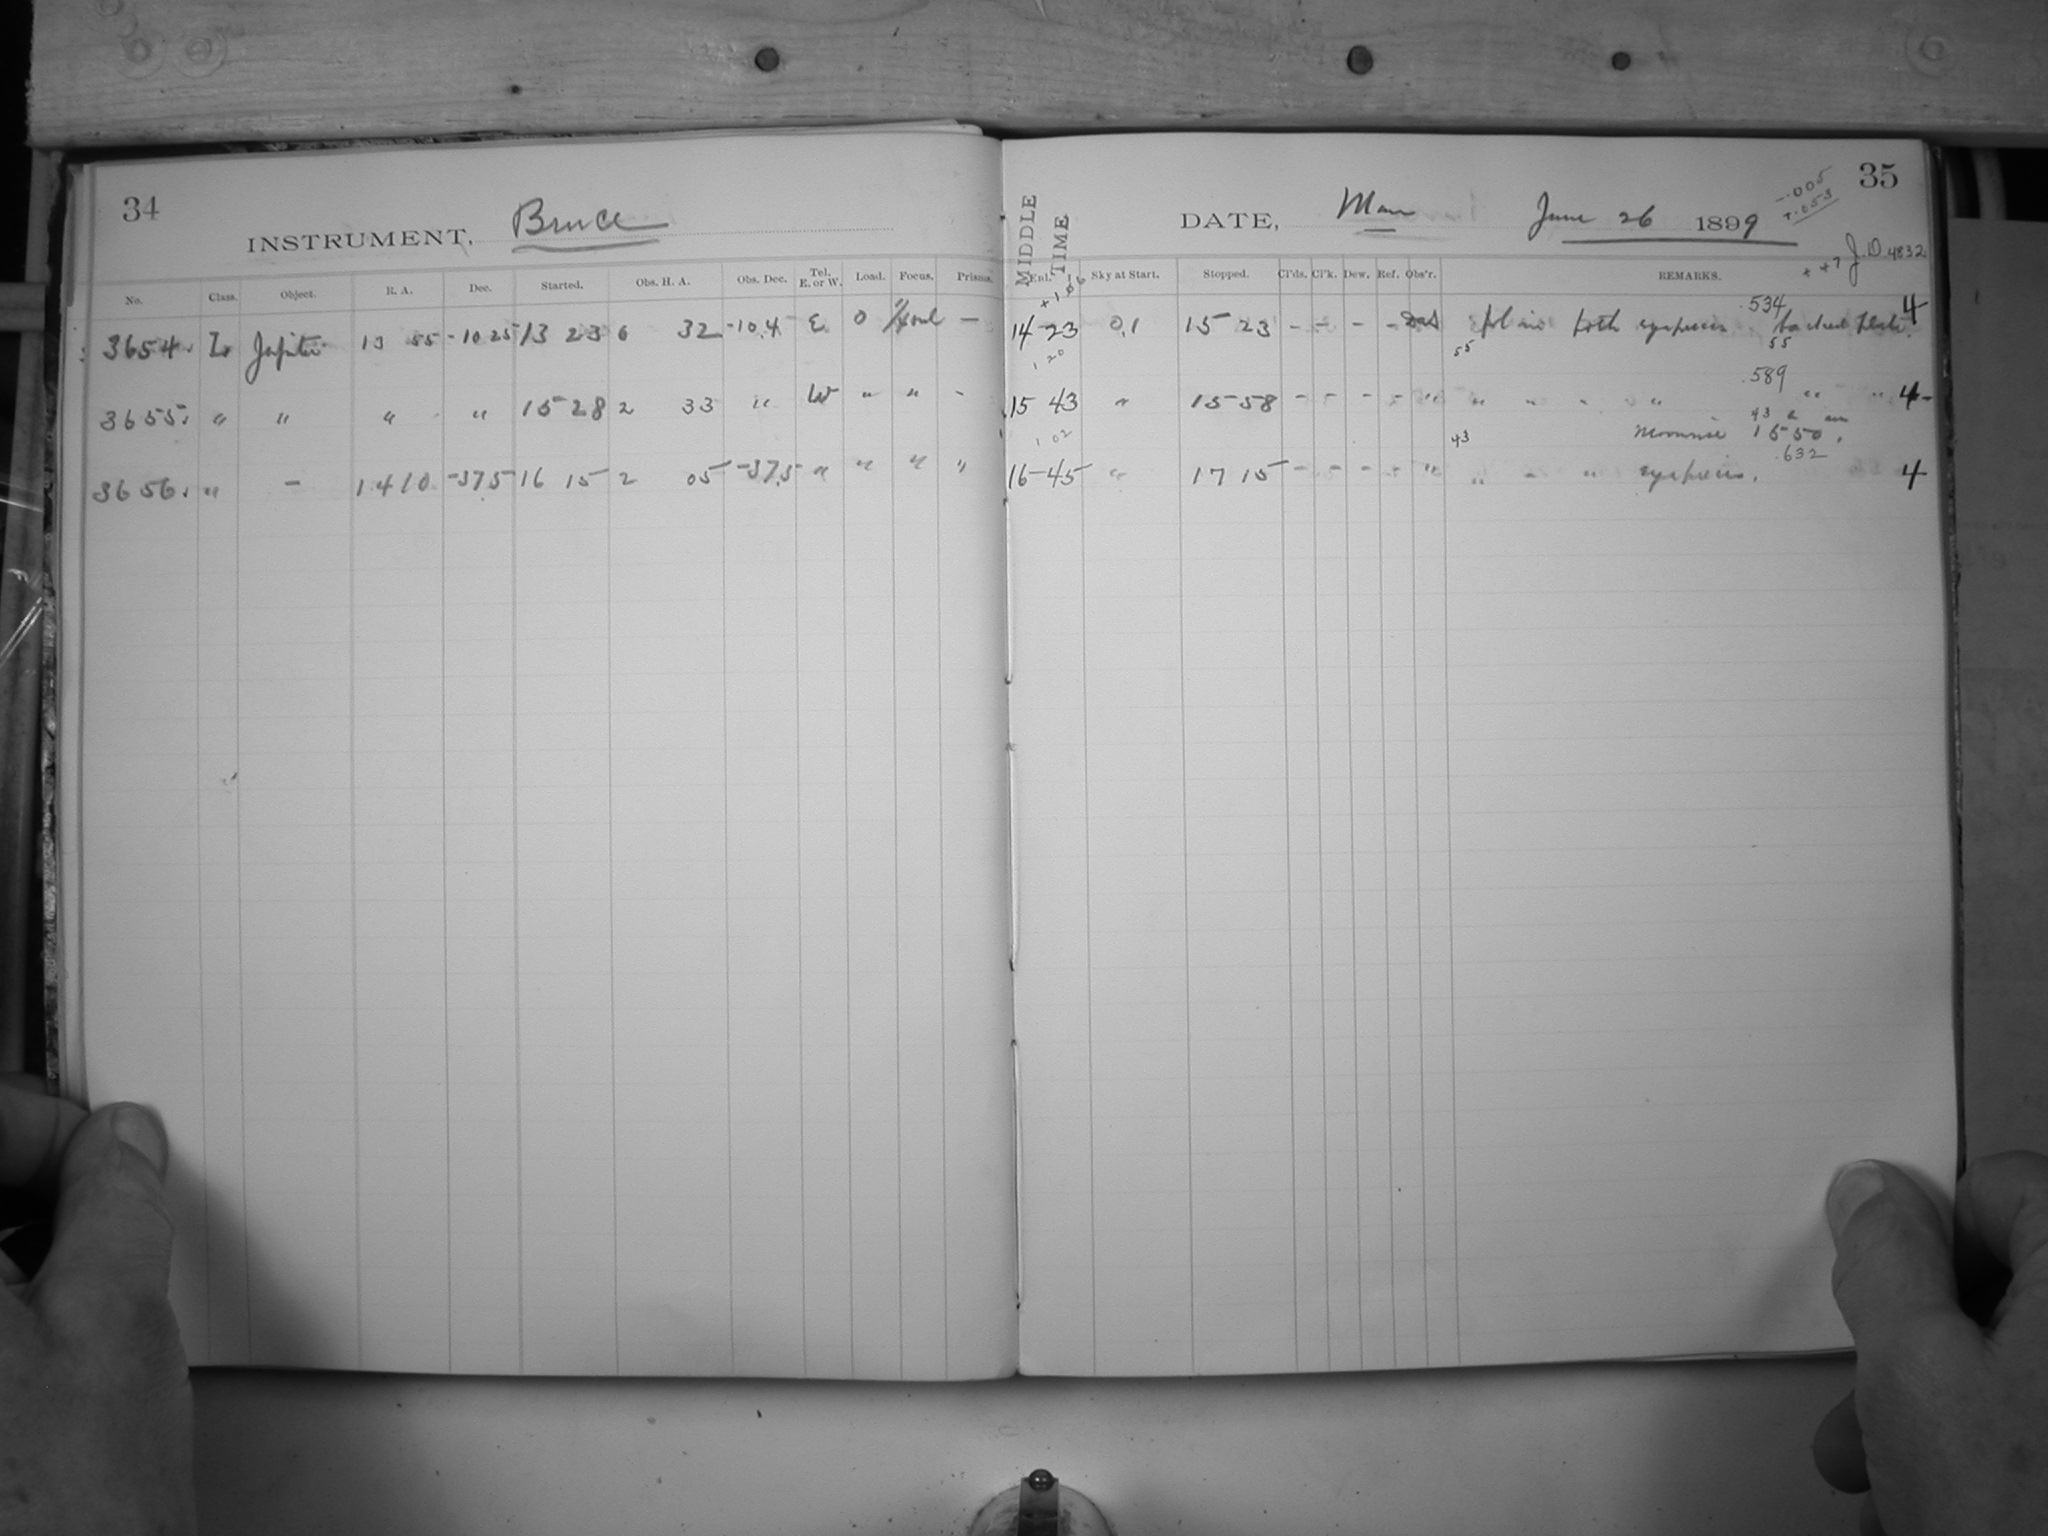 34
INSTRUMENT, Bruce
No. Class. Object. R. A. Dec. Started. Obs. H. A. Obs. Dec. Tel. E. or W. Load. Focus. Prisms.
3654. Jupiter 13 55 -10 25 13 23 6 32 -10.4 E 0 —
3655. " " " " 15 28 2 33 " W " " -
3656. " — 14 10 -37.5 16 15 2 05 -37.5 " " " "
35
MIDDLE TIME
DATE, Mon June 26 1899
-.005
+.053
J.D. 4832
+ +7
Enl. Sky at Start. Stopped. Cl'ds. Cl'k. Dew. Ref. Obs'r. REMARKS.
+1 06
.534
14-23 0.1 15 23 - - - - both eyepieces. 4
55 55
1 20
.589
15 43 " 15 58 - - - - " " " " " " " 4
43
1 02
43 Moonrise 15 50.
.632
16-45 " 17 15 - - - - " " " " eyepieces. 4